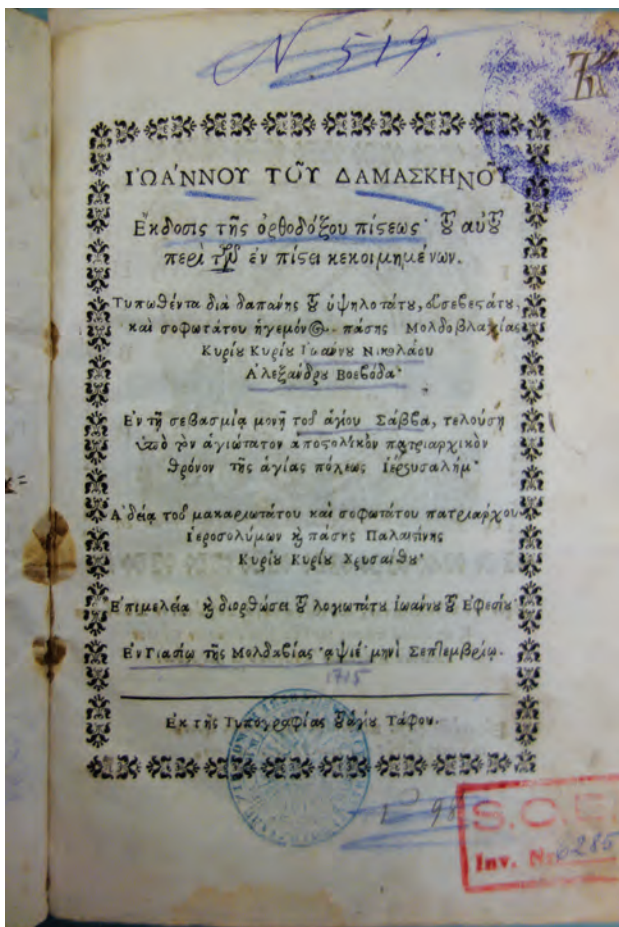 N. 519.
ἸΩΆΝΝΟΥ ΤΟΥ͂ ΔΑΜΑΣΚΗΝΟΥ͂
Ἔκδοσις τῆς ὀρθοδόξου πίϛεως· Ȣ͂ αὐȢ͂
περὶ τῶν ἐν πίϛει κεκοιμημένων.
Τυπωθέντα διὰ δαπάνης Ȣ͂ ὑψηλοτάτȣ, εὐσεβεϛάτȣ,
καὶ σοφωτάτου ἡγεμόνος πάσης Μολδοβλαχίας
Κυρίȣ Κυρίȣ Ἰωάννȣ Νικολάου
Ἀλεξάνδρȣ Βοεβόδα·
Ἐν τῇ σεβασμίᾳ μονῇ τοῦ ἁγίου Σάββα, τελούσῃ
ὑπὸ τὸν ἁγιώτατον ἀποϛολικὸν πατριαρχικὸν
θρόνον τῆς ἁγίας πόλεως Ἱερȣσαλήμ·
Ἀδείᾳ τοῦ μακαριωτάτου καὶ σοφωτάτου πατριάρχου
Ἱεροσολύμων ϗ πάσης Παλαιϛίνης
Κυρίȣ Κυρίȣ Χρυσάνθȣ·
Ἐπιμελείᾳ ϗ διορθώσει Ȣ͂ λογιωτάτȣ Ἰωάννȣ Ȣ͂ Ἐφεσίȣ·
Ἐν Γιασίῳ τῆς Μολδαβίας ͵αψιέ μηνὶ Σεπτεμβρίῳ.
1715
Ἐκ τῆς Τυπογραφίας Ȣ͂ ἁγίȣ Τάφου.
98
Inv. Nr. 6285